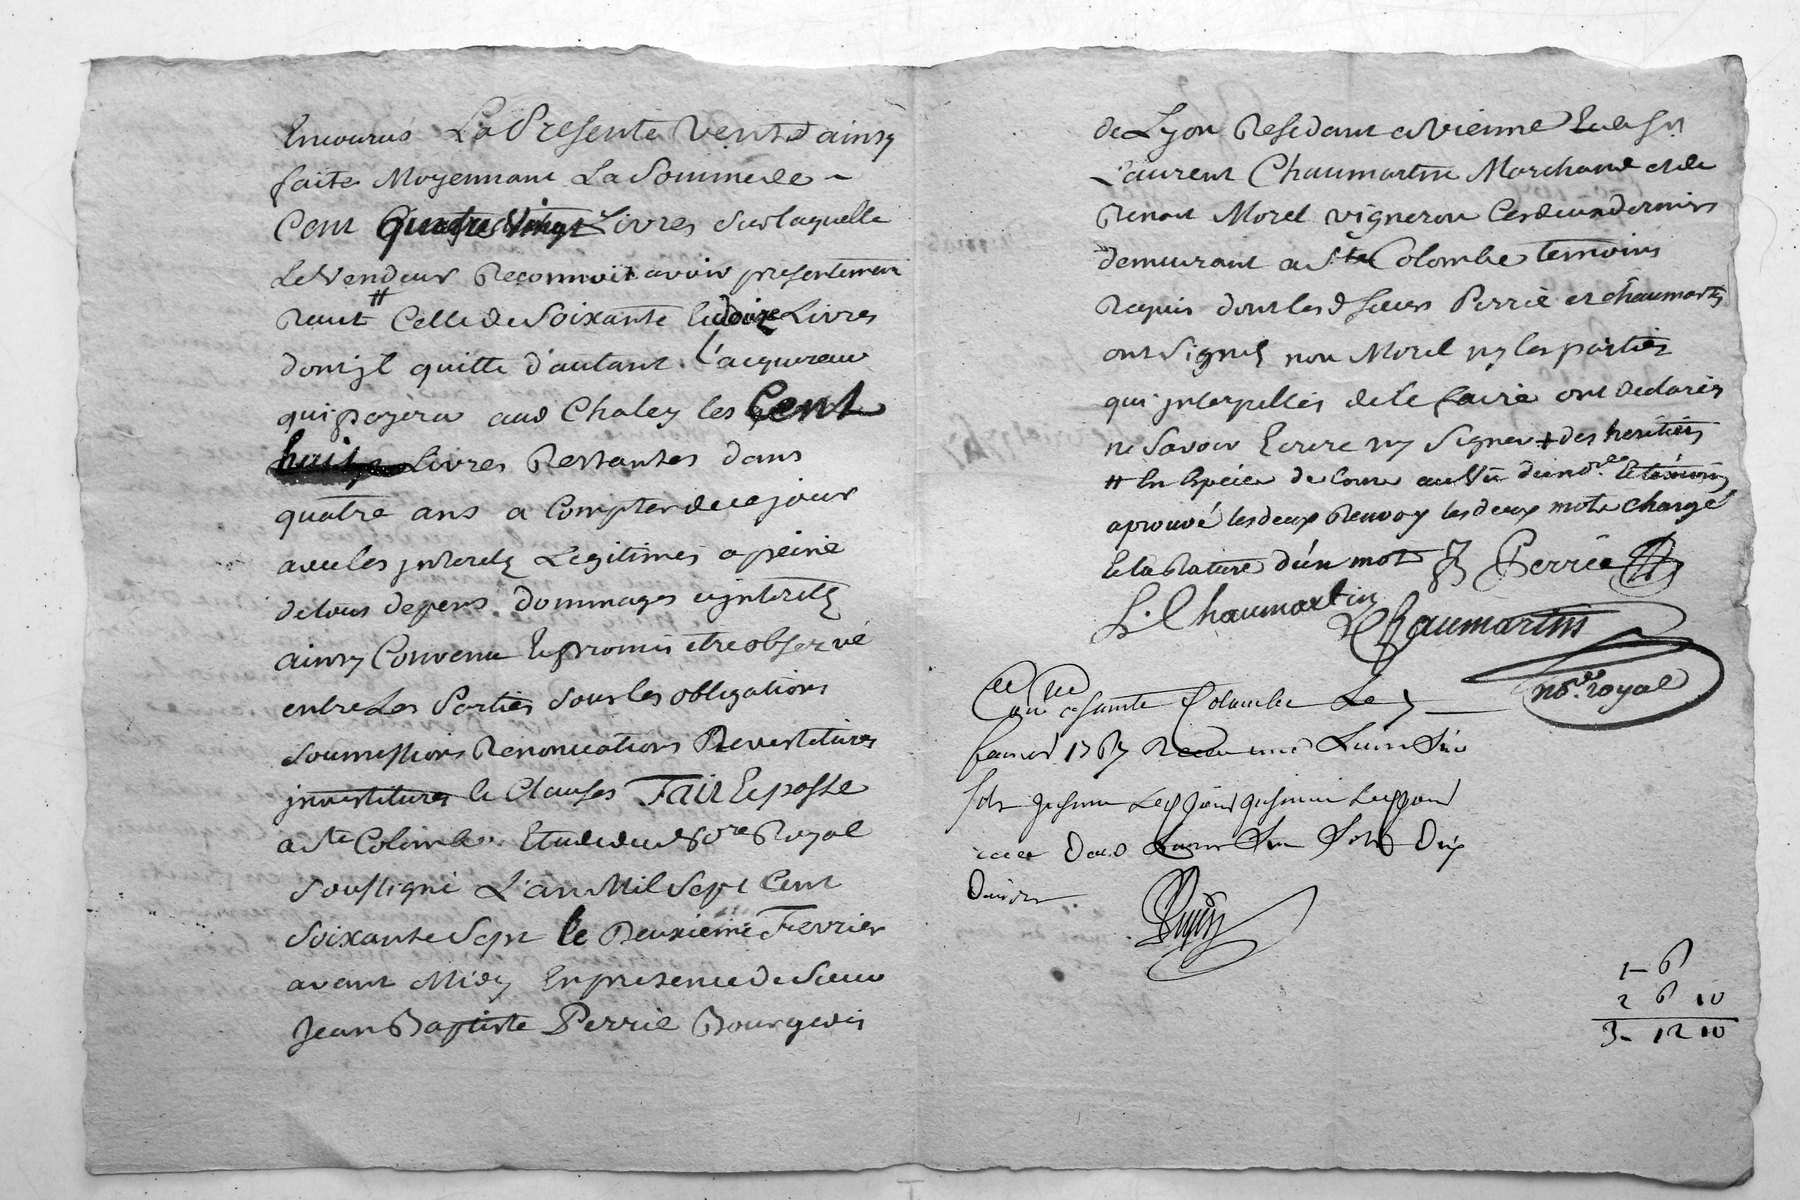 Encourus La Presente Vente ainsy
faite Moyennant La Somme de
Cent quatre Vingt Livres sur laquelle
Le Vendeur Reconnoit avoir presentement
Receut # Celle de Soixante et douze Livres
dont jl quitte d'autant L'acquereur
qui payera aud Chaley les Cent
huit Livres Restantes dans
quatre ans a Compter de ce jour
avec les jnterets Legitimes a peine
de tous depens dommages et jnterets
ainsy Convenu et promis être observé
entre Les Parties sous les obligations
soumissions Renonciations Revestitures
jnvestitures et Clauses Fait et passé
a Ste Colombe Etude du Nore Royal
Soussigné L'an Mil Sept Cent
Soixante Sept le Deuxieme Fevrier
avant Midy En presence de Sieur
Jean Baptiste Perrié Bourgeois
de Lyon Residant a Vienne et de Sr
Laurent Chaumartin Marchand et de
Benoit Morel vigneron Ces deux derniers
demeurant a Ste Colombe temoins
Requis dont les d Sieurs Perrié et Chaumartin
ont Signés non Morel ny les parties
qui jnterpellés de le faire ont declarés
ne Savoir Ecrire ny Signer + des heritiers
# En Espéce de Cours au Vû du nore et temoins
aprouvé les deux Renvoy les deux mots chargé
et la Rature d'un mot Perrié
L. Chaumartin Chaumartin
nore royal
a Sainte Colombe Le
fevrier 1767 Recu une Livre Six
Sols
Livre Six Sols Dix
Deniers
1- 6
2 6 10
3- 12 10